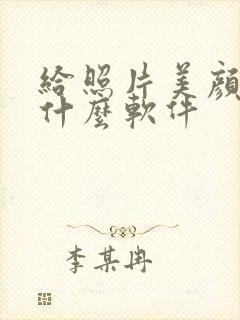 給照片美顔
什麼軟件
李某冉